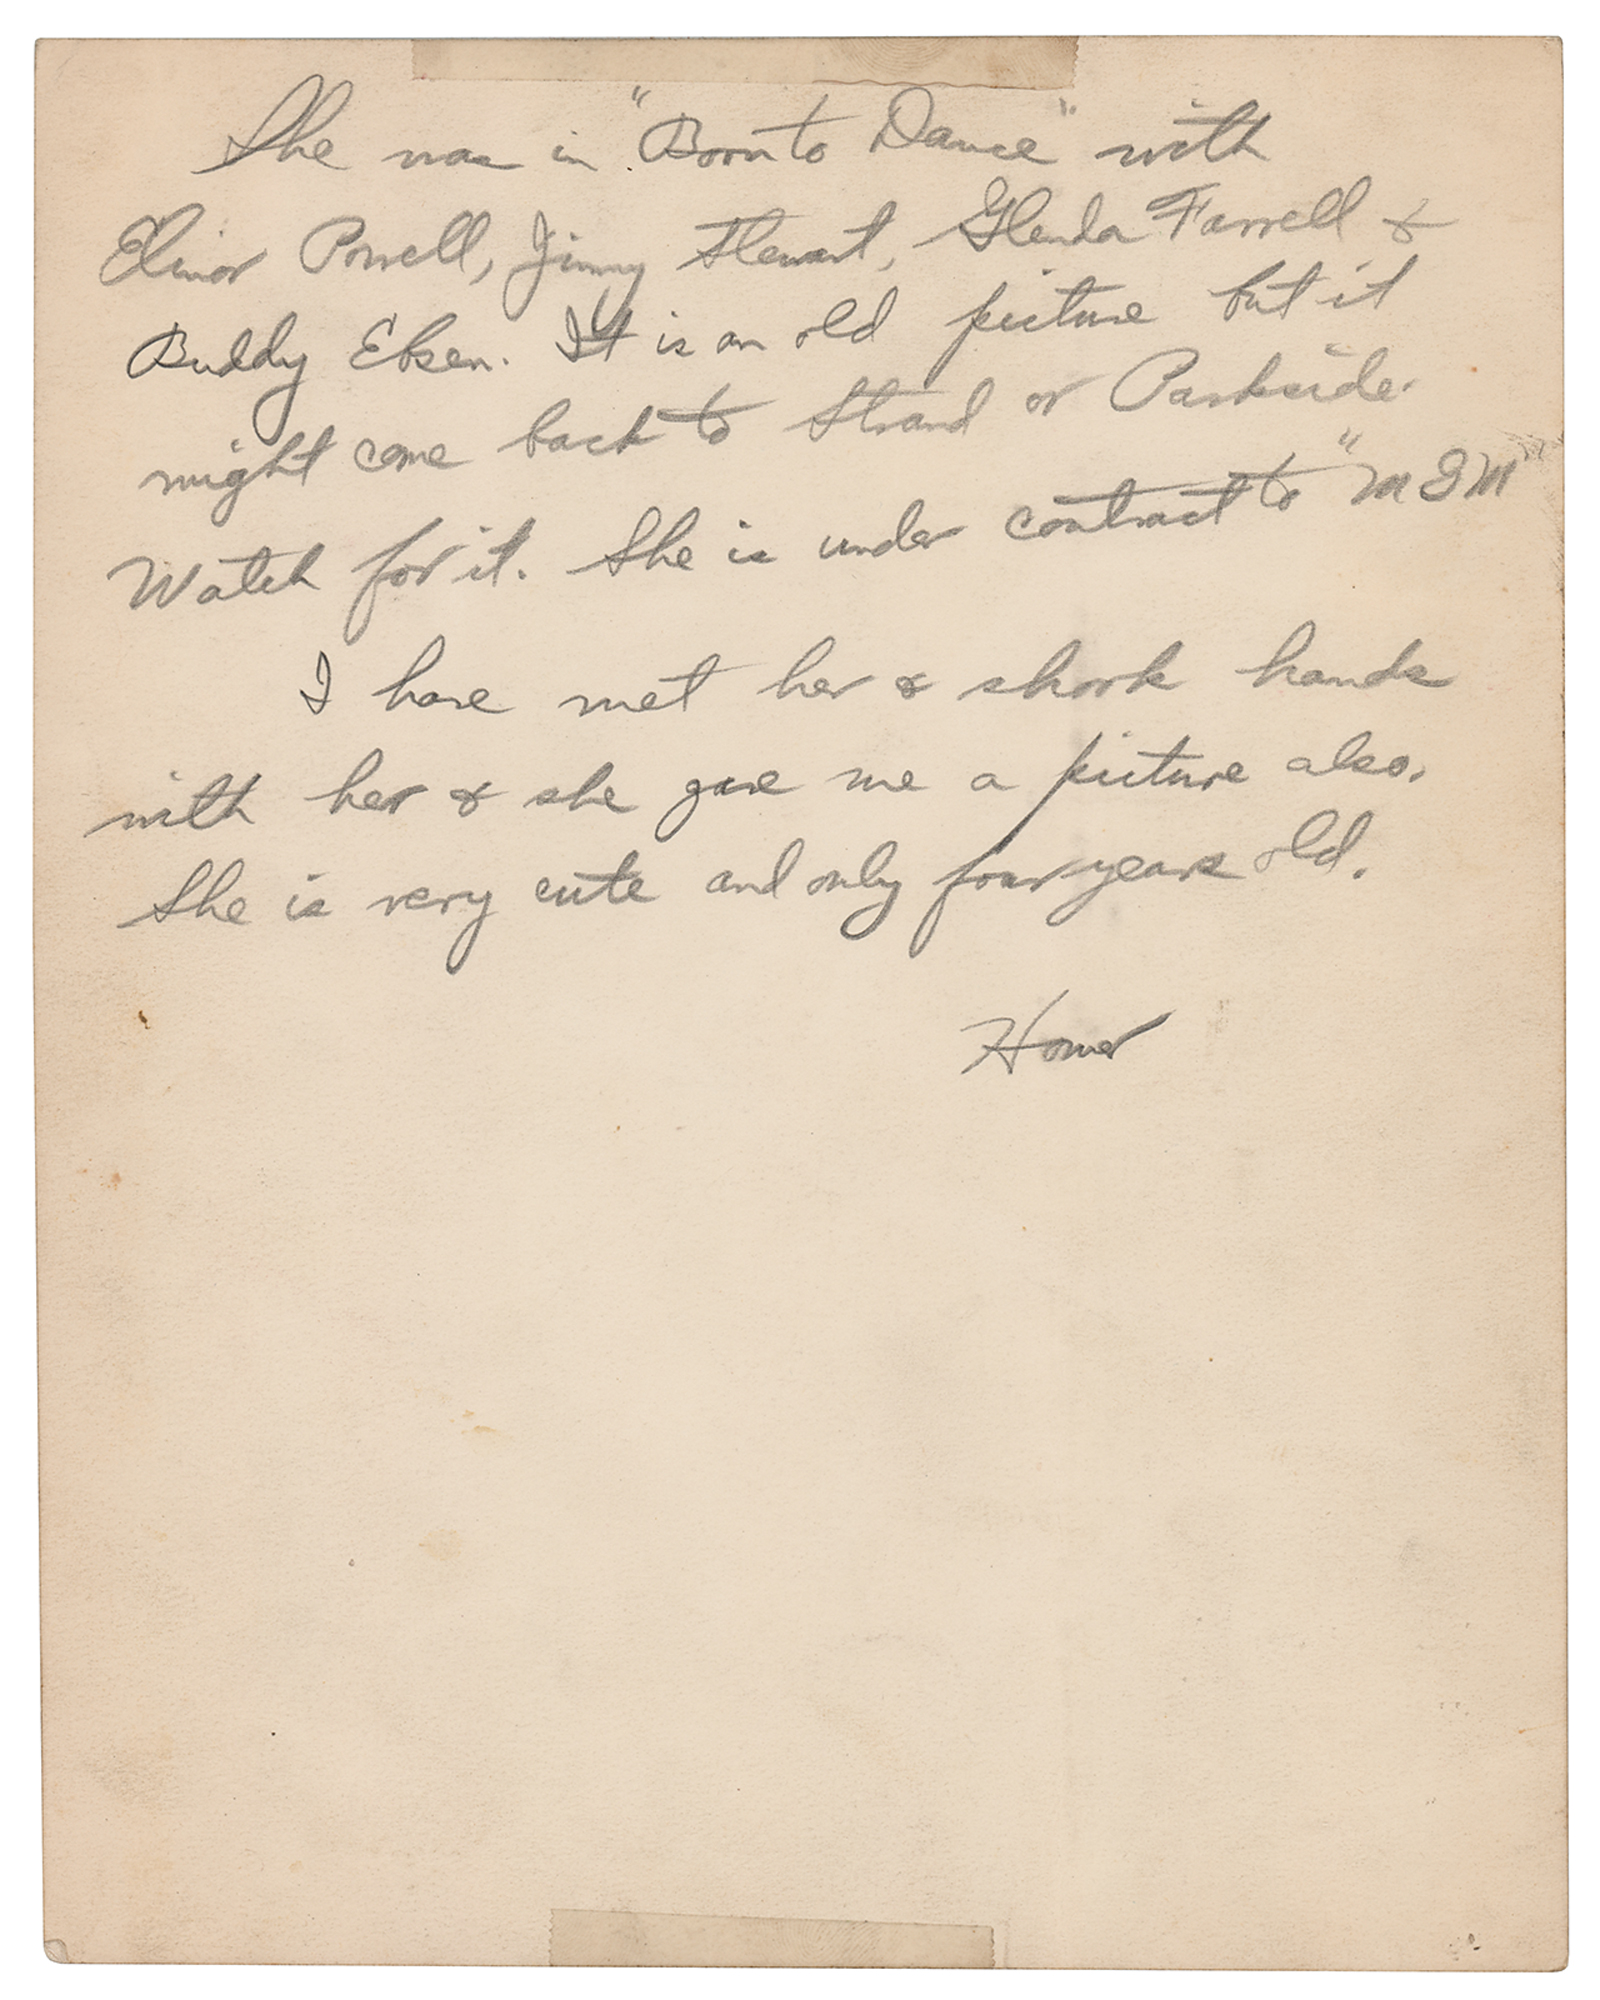 She was in "Born to Dance" with
Elinor Powell, Jimmy Stewart, Glenda Farrell &
Buddy Ebsen. It is an old picture but it
might come back to Strand or Parkside.
Watch for it. She is under contract to "MGM"
I have met her & shook hands
with her & she gave me a picture also.
She is very cute and only four years old.
Homer